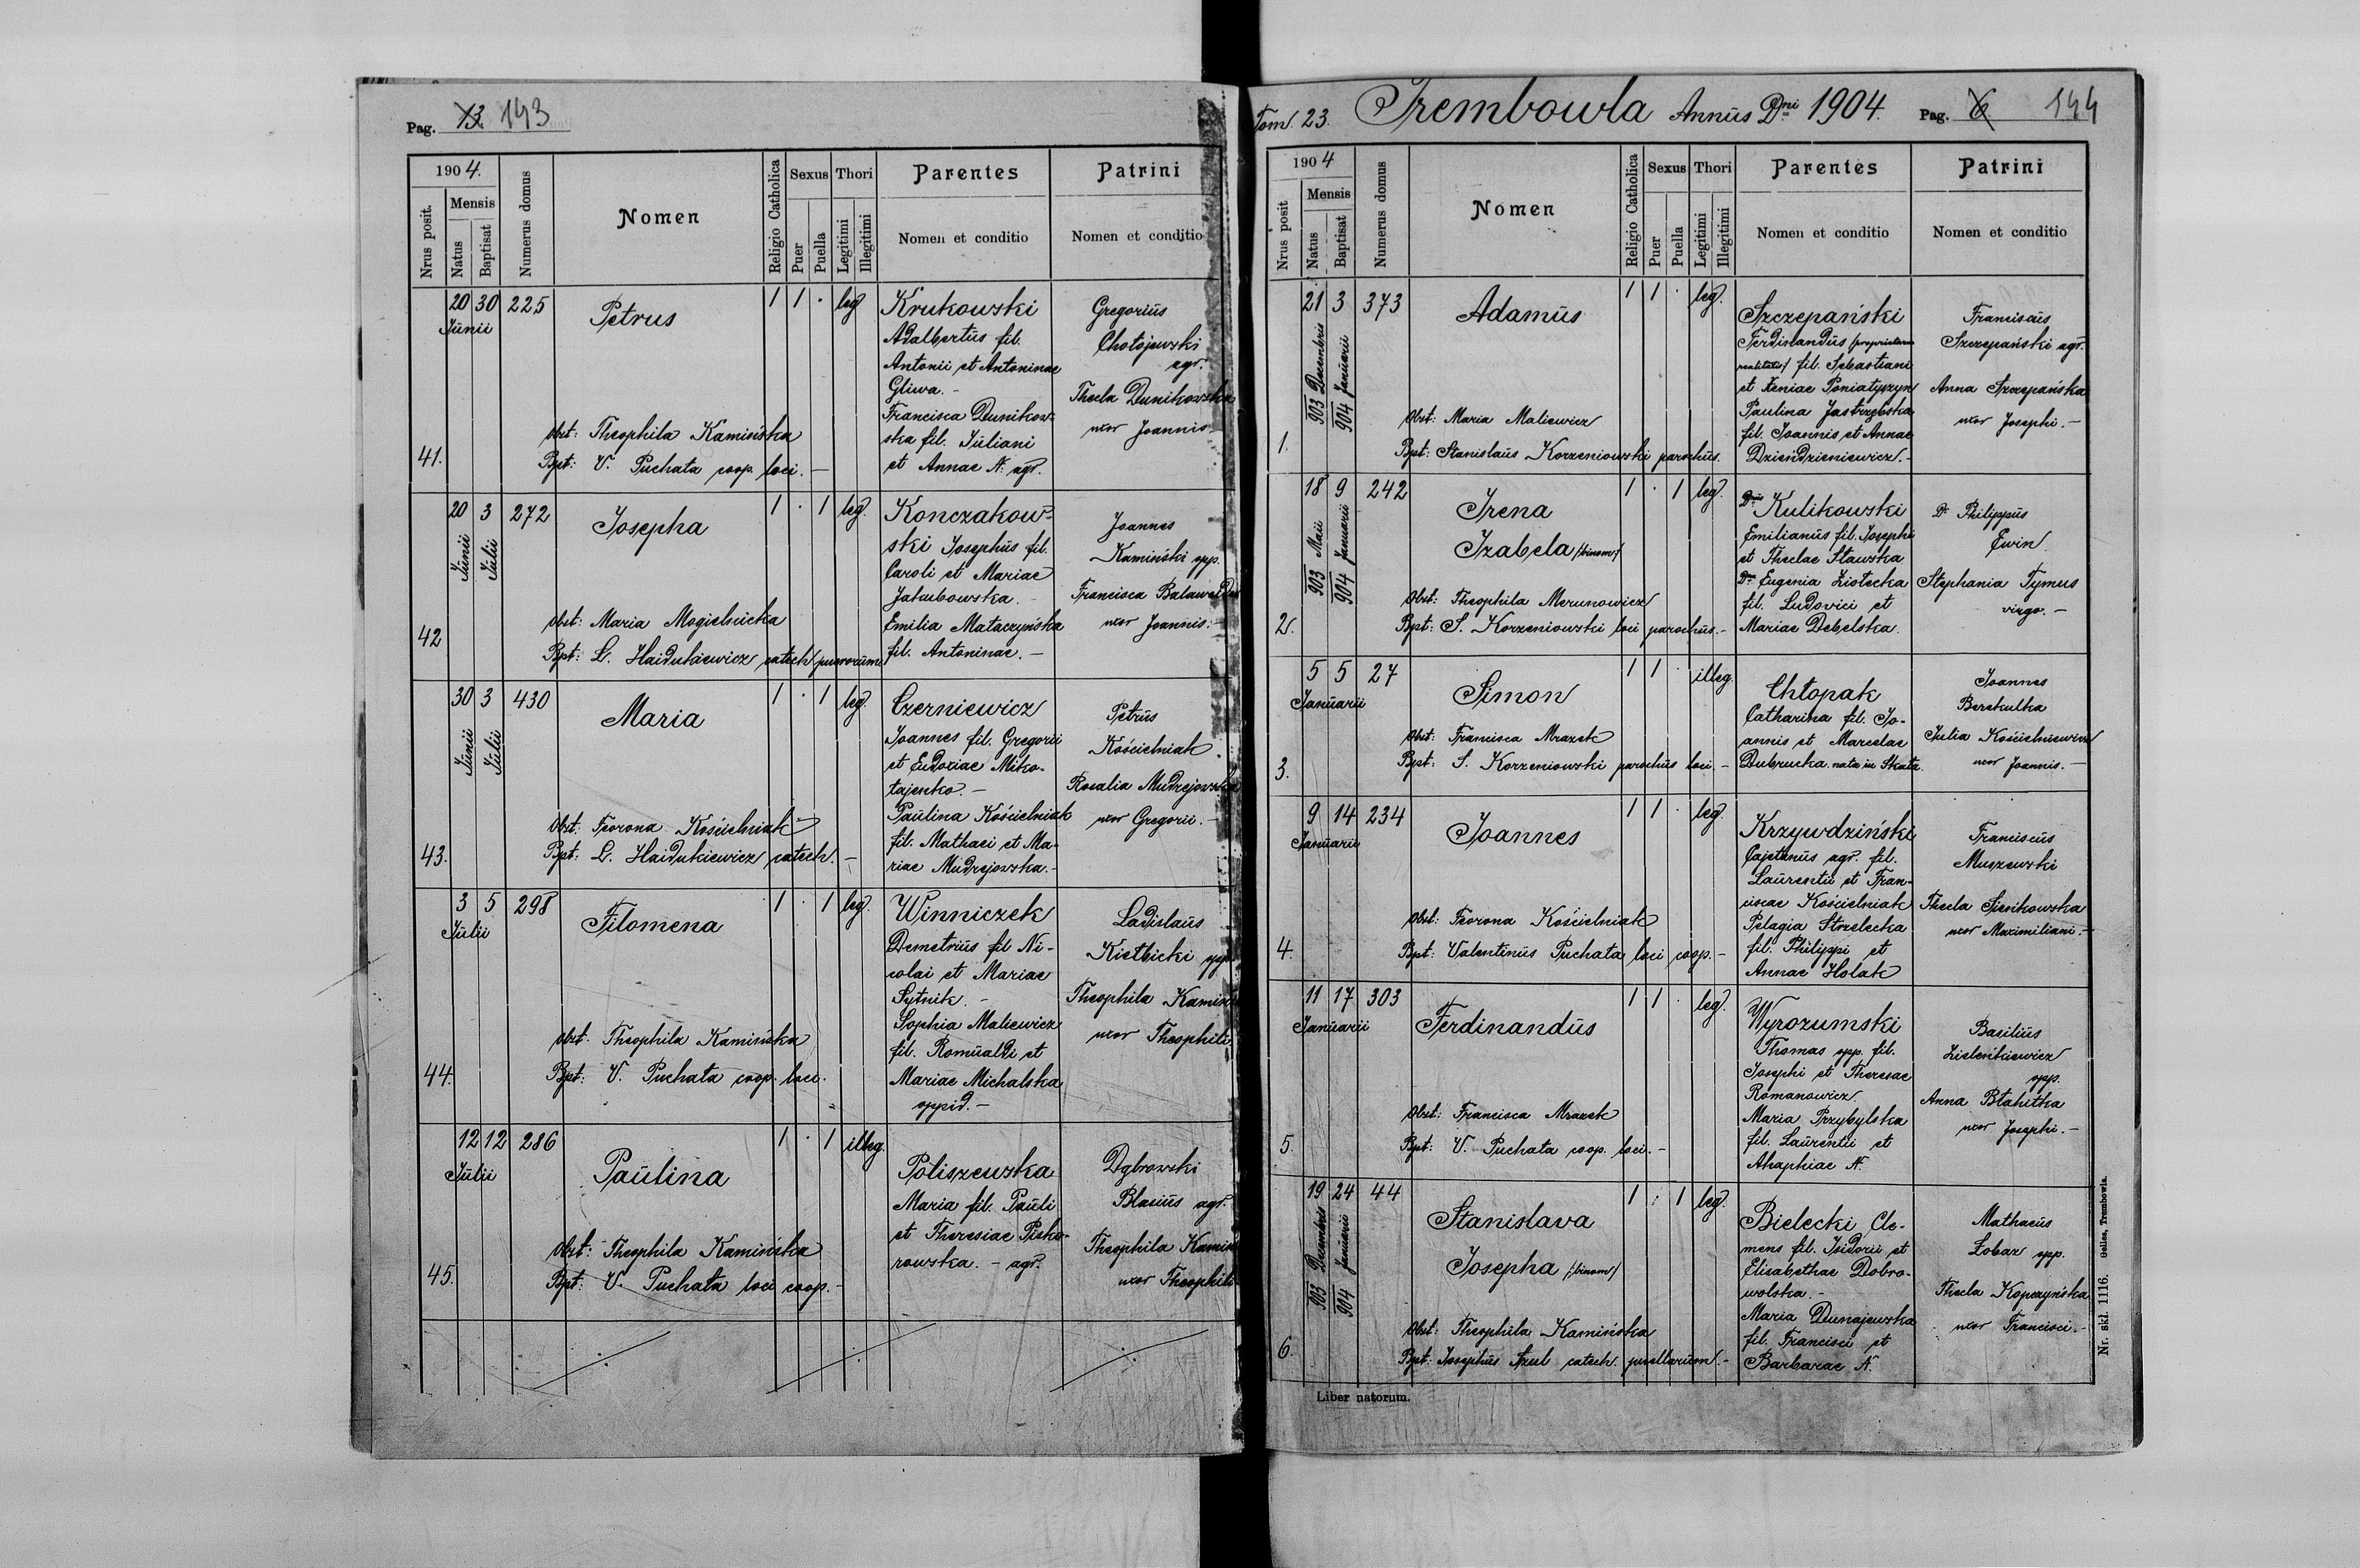 Pag. 13. 143
1904.
Nrus posit.
Mensis
Natus
Baptisat
Numerus domus
Nomen
Religio Catholica
Sexus
Puer
Puella
Thori
Legitimi
Illegitimi
Parentes
Nomen et conditio
Patrini
Nomen et conditio
41.
20 30 225
Junii
Petrus
1 1 · leg
Obst: Theophila Kamińska
Bpt: V. Puchała coop. loci. —
Krukowski
Adalbertus fil.
Antonii et Antoninae
Gliwa. —
Francisca Dunikow-
ska fil. Juliani
et Annae N. agr.
Gregorius
Chołojewski
agr.
Thecla Dunikowska
uxor Joannis
42
20 3 272
Junii Julii
Josepha
1 · 1 leg.
Obst: Maria Mogielnicka
Bpt: L. Haidukiewicz catech. puerorum
Konczakow-
ski Josephus fil.
Caroli et Mariae
Jakubowska. —
Emilia Mataczyńska
fil. Antoninae. —
Joannes
Kamiński opp.
Francisca
uxor Joannis. —
43.
30 3 430
Junii Julii
Maria
1 · 1 leg.
Obst. Feorona Kościelniak
Bpt: L. Haidukiewicz catech. —
Czerniewicz
Joannes fil. Gregorii
et Eudoxiae Miko-
łajenko. —
Paulina Kościelniak
fil. Mathaei et Ma-
riae Mudrejowska. —
Petrus
Kościelniak
Rosalia Mudrejowska
uxor Gregorii. —
44.
3 5 298
Julii
Filomena
1 · 1 leg.
Obst. Theophila Kamińska
Bpt: V. Puchała coop. loci.
Winniczek
Demetrius fil Ni-
colai et Mariae
Sytnik. —
Sophia Maliewicz
fil. Romualdi et
Mariae Michalska
oppid. —
Ladislaus
Kiełbicki opp.
Theophila Kamińs
uxor Theophili
45.
12 12 286
Julii
Paulina
1 · 1 illeg.
Obst: Theophila Kamińska
Bpt: V. Puchała loci coop. —
Poliszewska
Maria fil. Pauli
et Theresiae Pisko-
rowska. — agr.
Dąbrowski
Blasius agr.
Theophila Kamińs
uxor Theophili
Tom. 23. Trembowla Annus Dni 1904. Pag. 6. 144
1904
Nrus posit
Mensis
Natus
Baptisat
Numerus domus
Nomen
Religio Catholica
Sexus
Puer
Puella
Thori
Legitimi
Illegitimi
Parentes
Nomen et conditio
Patrini
Nomen et conditio
1.
21 3 373
903 Decembris 904 Januarii
Adamus
1 1 · leg.
Obst: Maria Maliewicz
Bpt: Stanislaus Korzeniowski parochus.
Szczepański
Ferdinandus /proprietarius
realitatis/ fil. Sebastiani
et Xeniae Poniatyszyn
Paulina Jastrzębska
fil. Joannis et Annae
Dziendzieniewicz. —
Franciscus
Szczepański agr.
Anna Szczepańska
uxor Josephi. —
2.
18 9 242
903 Maii 904 Januarii
Irena
Izabela /:binom:/
1 · 1 leg.
Obst: Theophila Merunowicz
Bpt: S. Korzeniowski loci parochus. —
Dnus Kulikowski
Emilianus fil. Josephi
et Theclae Sławska
Dna Eugenia Ziołecka
fil. Ludovici et
Mariae Debelska.
Dr Philippus
Ewin
Stephania Tymus
virgo. —
3.
5 5 27
Januarii
Simon
1 1 · illeg.
Obst: Francisca Mrazek
Bpt: S. Korzeniowski parochus loci. —
Chłopak
Catharina fil. Jo-
annis et Marcelae
Dubrucka. nata in Skała.
Joannes
Berekulka
Julia Kościelniewicz
uxor Joannis. —
4.
9 14 234
Januarii
Joannes
1 1 · leg.
Obst: Feorona Kościelniak
Bpt: Valentinus Puchała loci coop. —
Krzywdziński
Cajetanus agr. fil.
Laurentii et Fran-
ciscae Kościelniak
Pelagia Strzelecka
fil. Philippi et
Annae Holak
Franciscus
Muszewski
Thecla Sieńkowska
uxor Maximiliani. —
5.
11 17 303
Januarii
Ferdinandus
1 1 · leg.
Obst: Francisca Mrazek
Bpt: V. Puchała coop. loci. —
Wyrozumski
Thomas opp. fil.
Josephi et Theresae
Romanowicz.
Maria Przybylska
fil. Laurentii et
Ahaphiae N.
Basilius
Zieleńkiewicz
opp.
Anna Błahitka
uxor Josephi. —
6.
19 24 44
903 Decembris 904 Januarii
Stanislava
Josepha /:binom:/
1 : 1 leg.
Obst: Theophila Kamińska
Bpt: Josephus Szul catech. puellarum. —
Bielecki Cle-
mens fil. Isidorii et
Elisabethae Dobro-
wolska. —
Maria Dunajewska
fil. Francisci et
Barbarae N.
Mathaeus
Łobaz opp.
Thecla Kopczyńska
uxor Francisci. —
Liber natorum.
Nr. skł. 1116. Gelles, Trembowla.